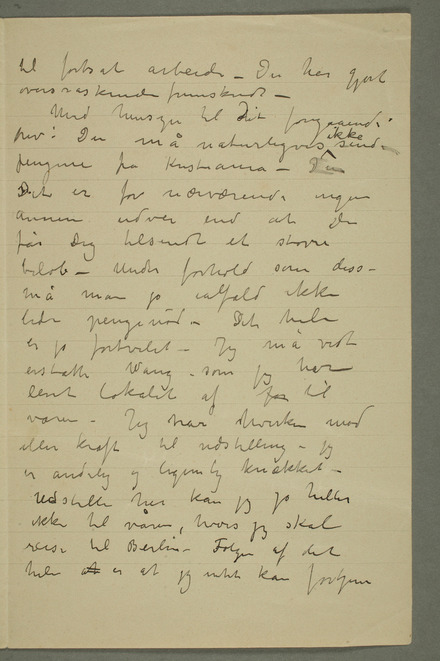 til fortsat arbeide – Du har gjort
overraskende fremskridt –
Med hensyn til Dit foregaaende
brev: Du må naturligvis ikke sende
pengene fra Kristiania –
Det er for nærværende ingen
annen udvei end at Du
får Dig tilsendt et større
beløb – Under forhold som disse
må man jo ialfald ikke
lide pengenød – Det hele
er jo fortvilet – Jeg må vist
erstatte Wang – som jeg har
leiet lokalet af for til
våren – Jeg har hverken mod
eller kraft til udstilling – jeg
er andelig og legemlig knækket –
Udstille her kan jeg jo heller
ikke til våren, hvis jeg skal
reise til Berlin – Følgen af det
hele er at jeg intet kan fortjene